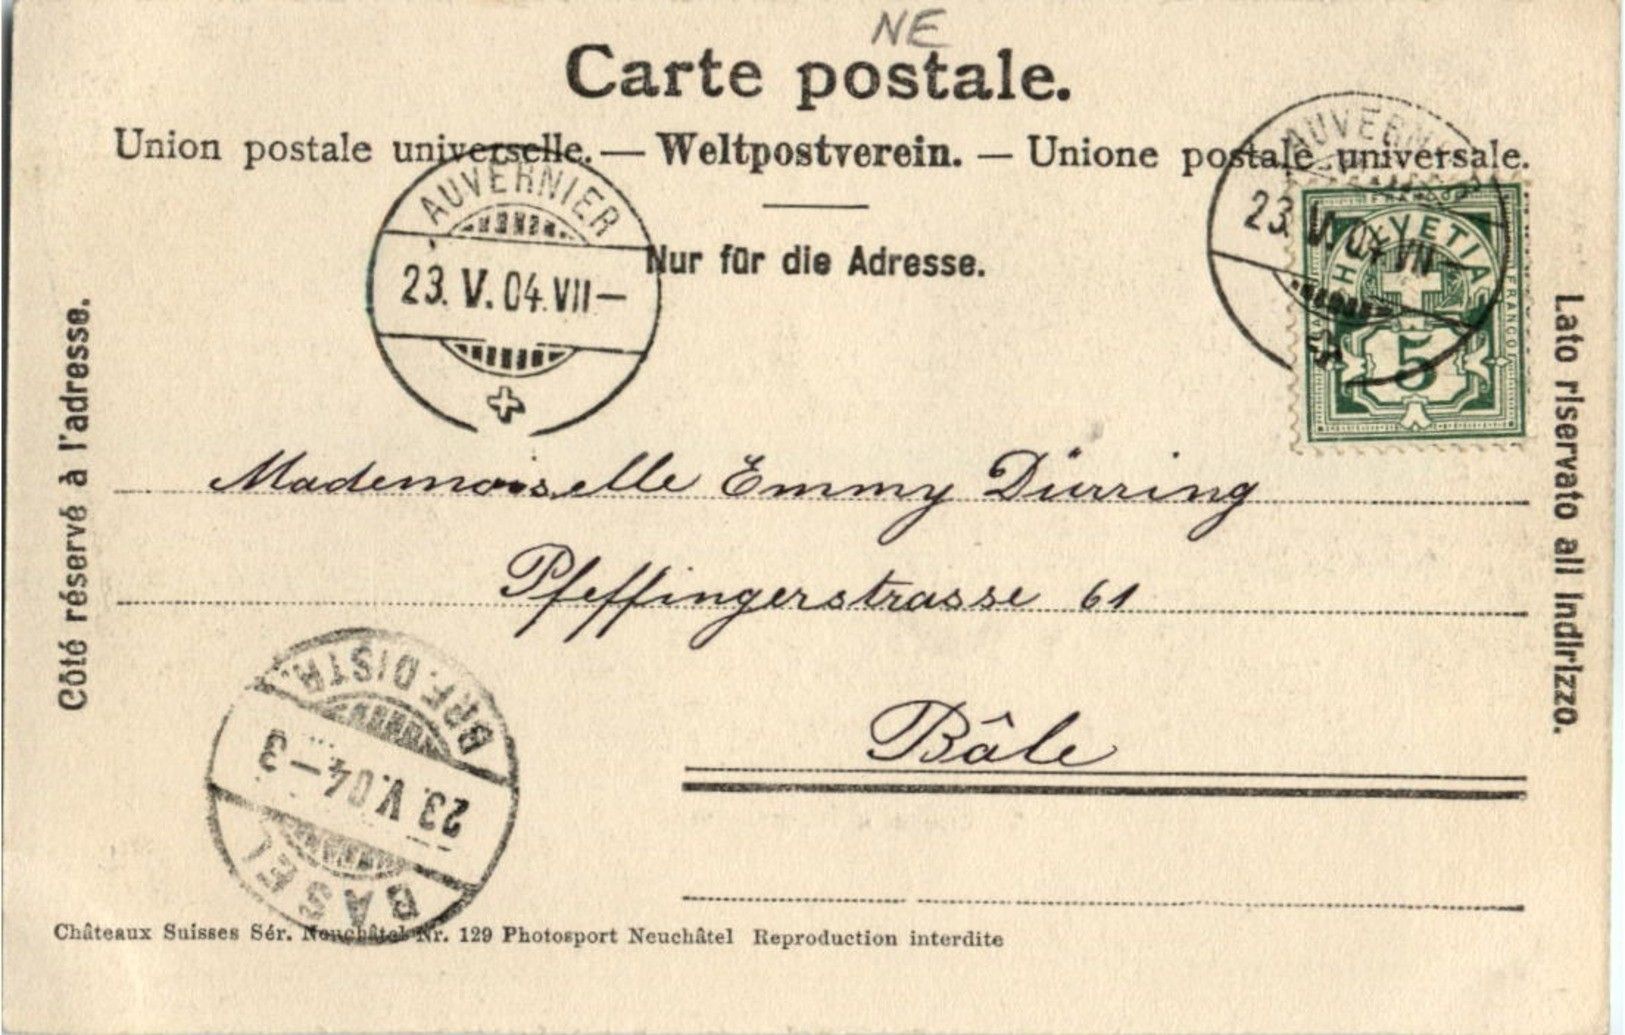 NE
Carte postale.
Union postale universelle. — Weltpostverein. — Unione postale universale.
Nur für die Adresse.
AUVERNIER
23. V. 04. VII—
AUVERNIER
23. V. 04. VII—
FRANCO
HELVETIA
FRANCO
5
Côté réservé à l'adresse.
Lato riservato all indirizzo.
Mademoiselle Emmy Dürring
Pfeffingerstrasse 61
Bâle
BASEL
23. V. 04.—3
BRF. DISTR.
Châteaux Suisses Sér. Neuchâtel Nr. 129 Photosport Neuchâtel Reproduction interdite